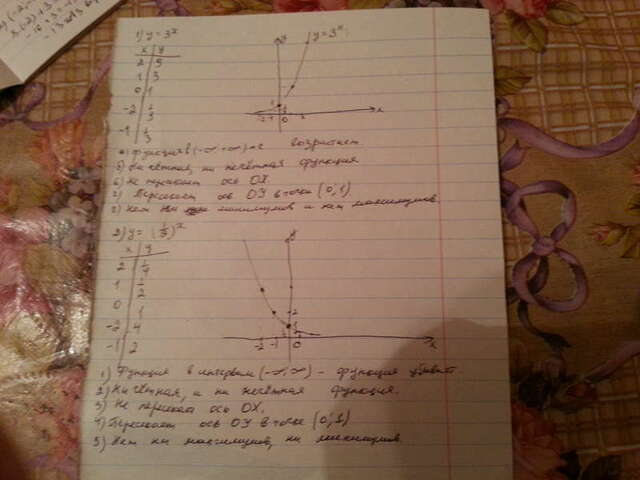 1) y = 3ˣ
x | y
2 | 9
1 | 3
0 | 1
-2 | 1/9
-1 | 1/3
y
y = 3ˣ
-2 -1 0 1
x
(-∞; +∞) возрастает.
5) Ни чётная, ни нечётная функция
6) Не пересекает ось OX.
Пересекает ось OY в точке (0; 1)
Нет ни максимумов и нет максимумов.
2) y = (1/3)ˣ
x | y
2 | 1/4
1 | 1/2
0 | 1
-2 | 4
-1 | 2
y
-2 -1 0
x
1) Функция в интервале (-∞; ∞) - функция убывает.
2) Ни чётная, и ни нечётная функция.
3) Не пересекает ось OX.
4) Пересекает ось OY в точке (0; 1)
5) Нет ни максимумов, ни максимумов.